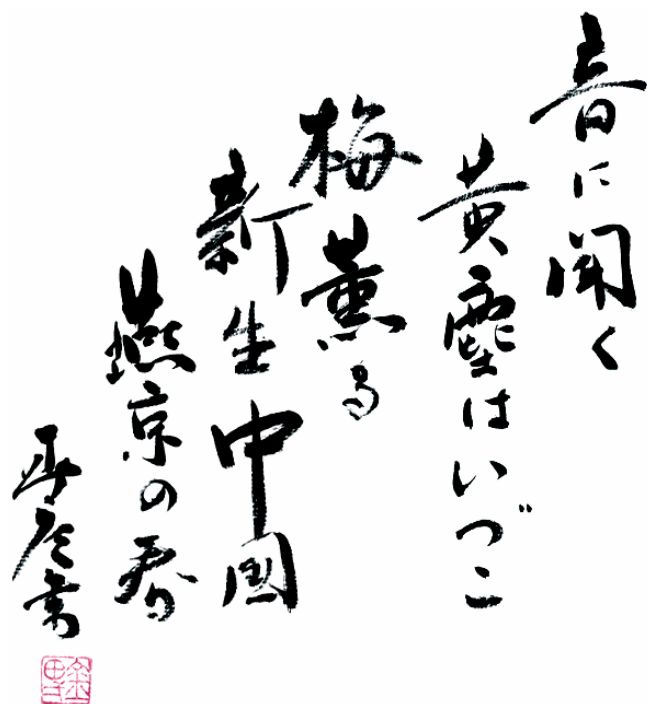 音に聞く
黄塵はいづこ
梅薫る
新生中国
燕京の春